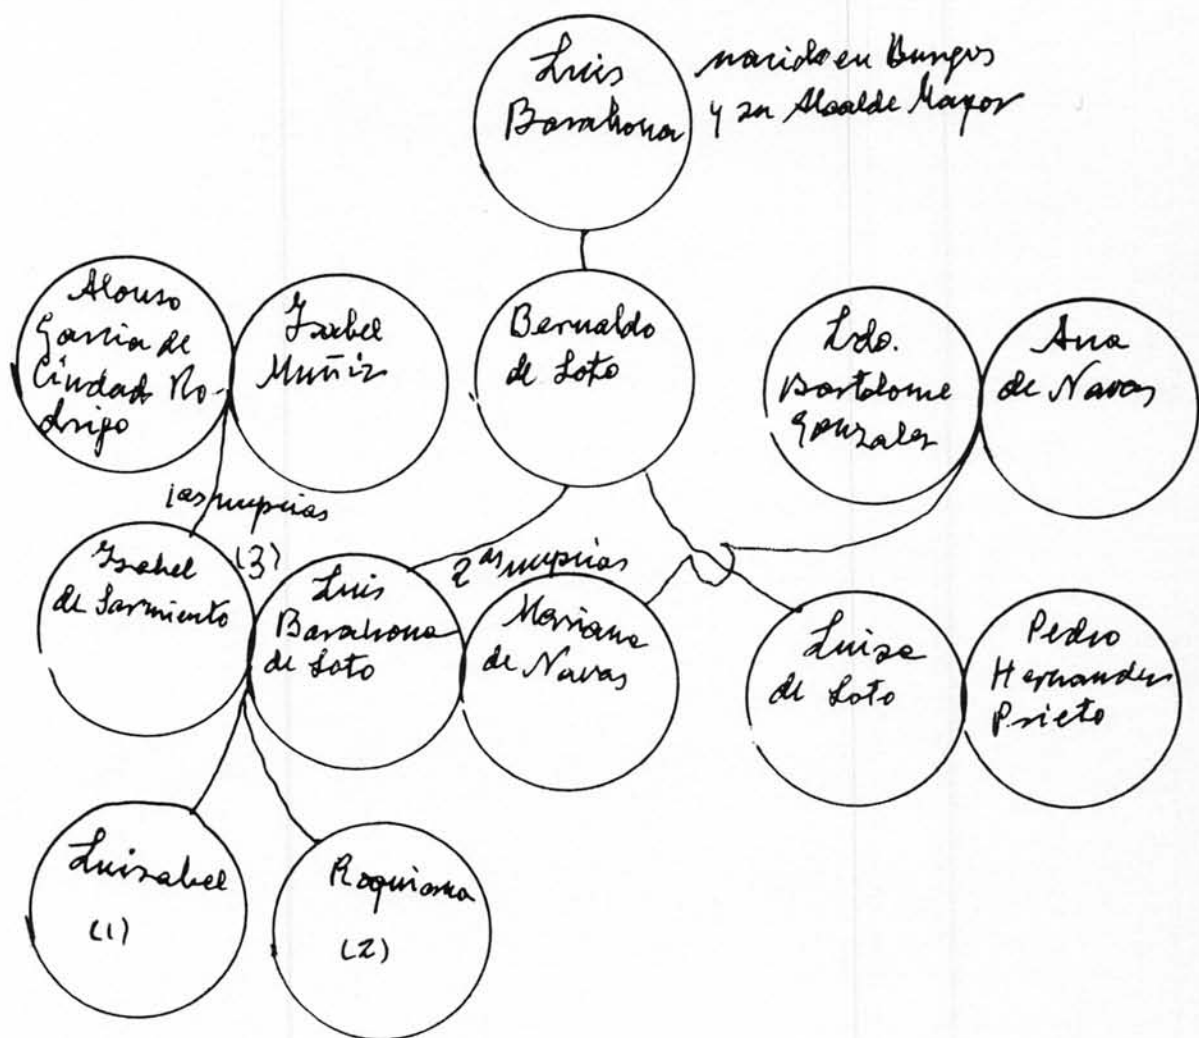 Luis
Barahona
nacido en Burgos
y su Alcalde Mayor
Alonso
García de
Ciudad Ro-
drigo
Isabel
Muñiz
Bernaldo
de Soto
Ldo.
Bartolome
Gonzalez
Ana
de Navas
1as nupcias
(3)
2as nupcias
Isabel
de Sarmiento
Luis
Barahona
de Soto
Mariana
de Navas
Luisa
de Soto
Pedro
Hernandez
Prieto
Luisabel
(1)
Roquiana
(2)